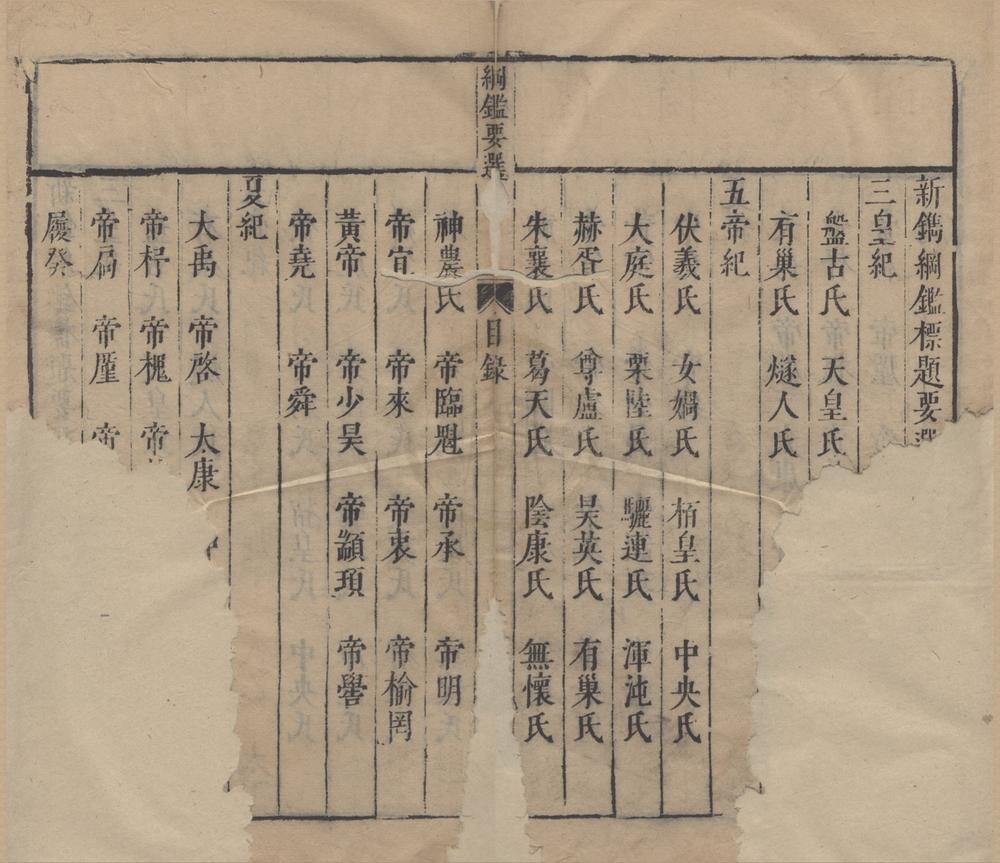 新鐫綱鑑標題要
三皇紀
盤古氏 天皇氏
有巢氏 燧人氏
五帝紀
伏羲氏 女媧氏 栢皇氏 中央氏
大庭氏 栗陸氏 驪連氏 渾沌氏
赫胥氏 尊盧氏 昊英氏 有巢氏
朱襄氏 葛天氏 陰康氏 無懷氏
綱鑑要選 目錄
神農氏 帝臨魁 帝承 帝明
帝宜 帝來 帝衷 帝榆罔
黃帝 帝少昊 帝顓頊 帝嚳
帝堯 帝舜
夏紀
大禹 帝啓 太康
帝杼 帝槐 帝
帝扃 帝廑 帝
履癸